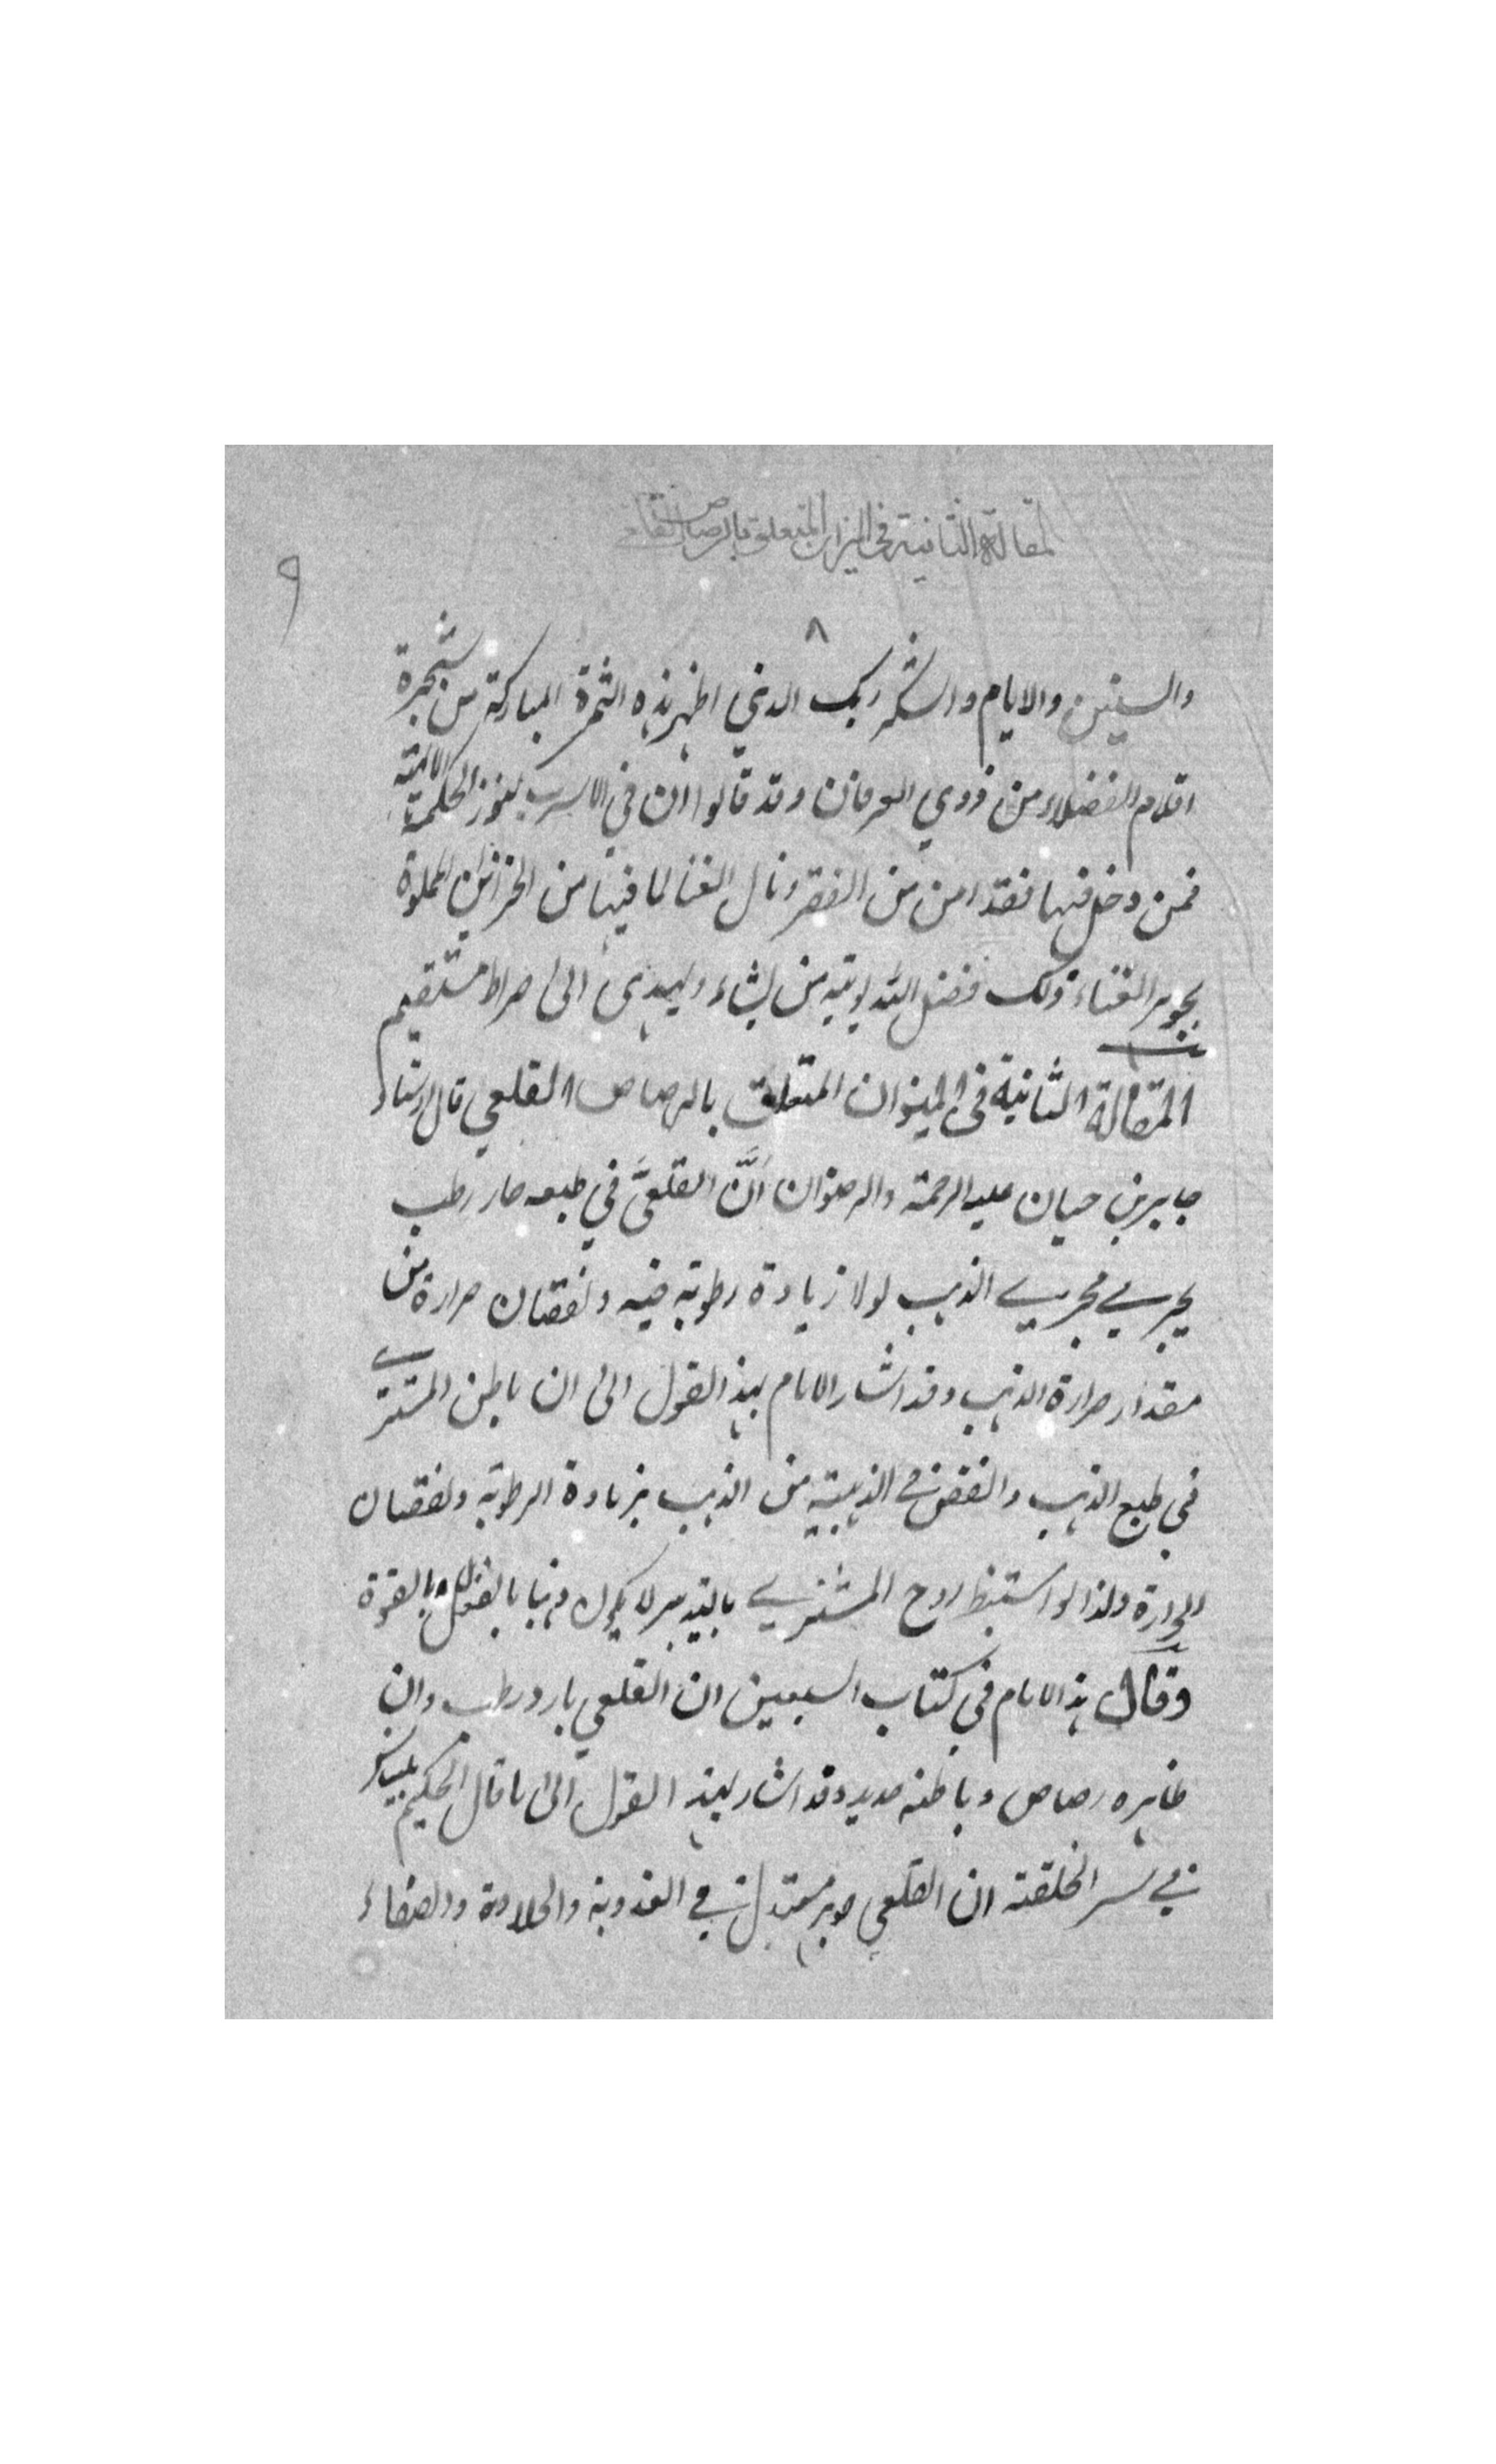 المقالة الثانية في الميزان المتعلق بالرصاص القلعي
٩
٨
والسنين والايام واشكر ربك الذي اظهر هذه الثمرة المباركة من شجرة
اقلام الفضلاء من ذوي العرفان وقد قالوا ان في الاسرب كنوز الحكمة الالهية
فمن دخل فيها فقد امن من الفقر ونال الغنا لما فيها من الخزائن المملوة
بجوهر الغناء ذلك فضل الله يؤتيه من يشاء ويهدى الى صراط مستقيم
المقالة الثانية في الميزان المتعلق بالرصاص القلعي قال الاستاد
جابر بن حيان عليه الرحمة والرضوان انَّ القلعىَّ في طبعه حار رطب
يجري مجري الذهب لولا زيادة رطوبة فيه ونقصان حرارة من
مقدار حرارة الذهب وقد اشار الامام بهذا القول الى ان باطن المشتري
في طبع الذهب وانقص في الذهبية من الذهب بزيادة الرطوبة ونقصان
الحرارة ولذا لو استنبط روح المشتري بالتدبير لا يكون ذهبا بالفعل بالقوة
وقال هذا الامام في كتاب السبعين ان القلعي بارد رطب وان
ظاهره رصاص وباطنه حديد وقد اشار بهذا القول الى ما قال الحكيم بليناس
في سر الخلقة ان القلعي جوهر معتدل في العذوبة والحلاوة والصفاء